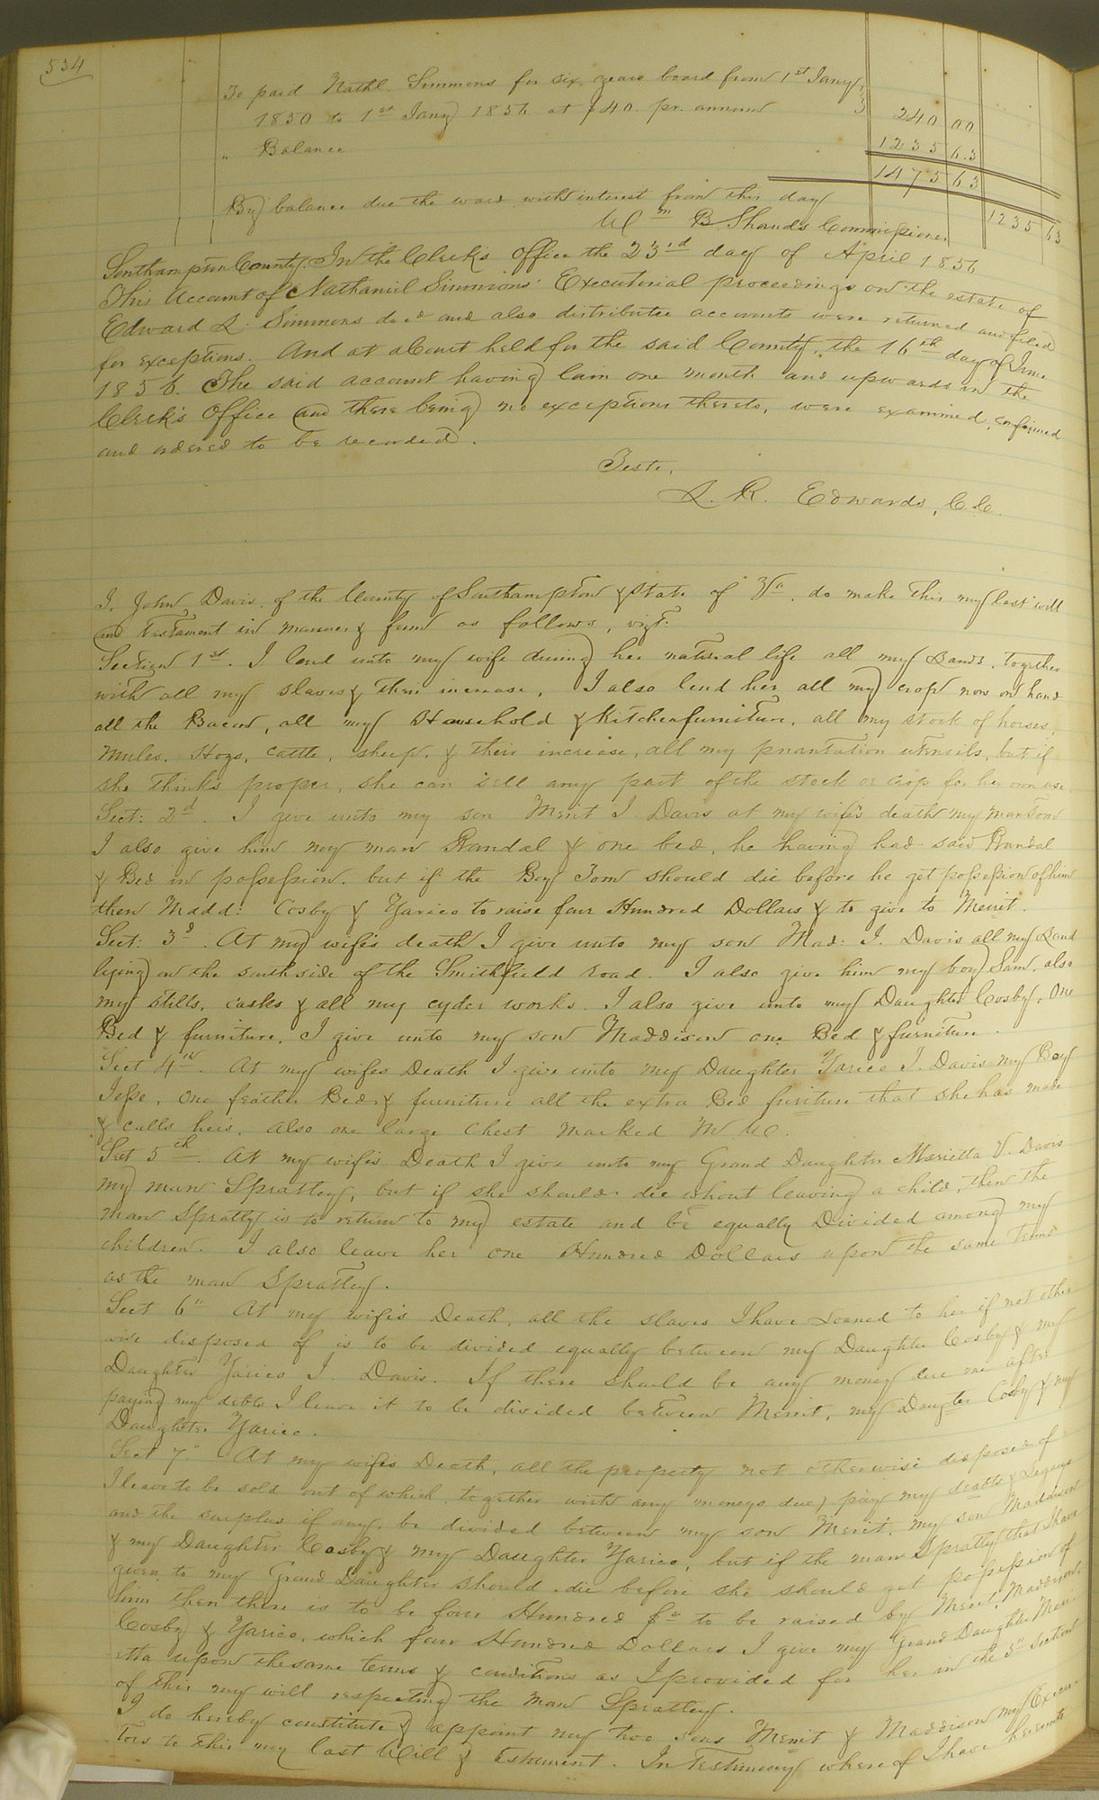 534
To paid Nathl. Simmons for six years board from 1st Jany
1850 to 1st Jany 1856 at $40. pr. annum 240 00
" Balance 1235 63
1475 63
By balance due the ward with interest from this day 1235 63
Wm B Shands Commissioner
Southampton County. In the Clerk's Office the 23rd day of April 1856
This Account of Nathaniel Simmons' Executorial proceedings on the estate of
Edward L. Simmons decd and also distributee accounts were returned and filed
for exceptions. And at a Court held for the said County, the 16th day of June
1856. The said account having lain one month and upwards in the
Clerk's Office and there being no exceptions thereto, were examined, confirmed
and ordered to be recorded.
Teste,
L. R. Edwards, C.C.
I, John Davis, of the County of Southampton & State of Va. do make this my last will
and testament in manner & form as follows, vizt.
Section 1st. I lend unto my wife during her natural life all my Lands, together
with all my slaves & their increase. I also lend her all my crop now on hand
all the Bacon, all my Household & Kitchen furniture, all my stock of horses,
mules, Hogs, cattle, sheep, & their increase, all my plantation utensils, but if
she thinks proper, she can sell any part of the stock or crop for her own use
Sect: 2d. I give unto my son Merit I. Davis at my wife's death my man Tom
I also give him my man Randal & one bed, he having had said Randal
& Bed in possession. but if the Boy Tom should die before he get possession of him
then Madd: Cosby & Yarico to raise four Hundred Dollars & to give to Merit.
Sect: 3d. At my wife's death I give unto my son Mad: I. Davis all my Land
lying on the south side of the Smithfield road. I also give him my boy Sam, also
my stills, casks & all my cyder works. I also give unto my Daughter Cosby, One
Bed & furniture. I give unto my son Maddison one Bed & furniture.
Sect 4th. At my wifes Death I give unto my Daughter Yarico I. Davis my Boy
Jesse, one feather Bed & furniture all the extra Bed furniture that she has made
& calls hers, also one large Chest marked M W.
Sect 5th. At my wife's Death I give unto my Grand Daughter Marietta V. Davis
my man Spratley, but if she should die without leaving a child, then the
man Spratly is to return to my estate and be equally Divided among my
children. I also leave her one Hundred Dollars upon the same terms
as the man Spratley.
Sect 6th At my wife's Death, all the slaves I have Loaned to her if not other
wise disposed of is to be divided equally between my Daughter Cosby & my
Daughter Yarico I. Davis. If there should be any money due me after
paying my debts I leave it to be divided between Merit, my Daugter Cosby & my
Daughter Yarico.
Sect 7th At my wifes Death, all the property not otherwise disposed of
I leave to be sold out of which, together with any moneys due, pay my debts & Legacys
and the surplus if any, be divided between my son Merit, my son Maddison
& my Daughter Cosby & my Daughter Yarico, but if the man Spratly that I have
given to my Grand Daughter should die before she should get possession of
him then there is to be four Hundred $s to be raised by Merit, Maddison,
Cosby & Yarico, which four Hundred Dollars I give my Grand Daughter Mari
etta upon the same terms & conditions as I provided for her in the 5th section
of this my will respecting the man Spratley.
I do hereby constitute & appoint my two sons Merit & Maddison my Execu-
tors to this my last Will & testament. In testimony whereof I have hereunto